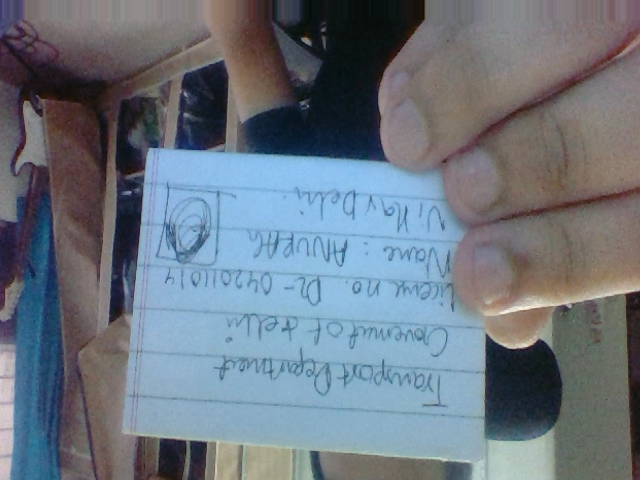 Transport Department
Goverment of delhi
License no. DL-042011014
Name : ANURAG
Vihar Delhi.